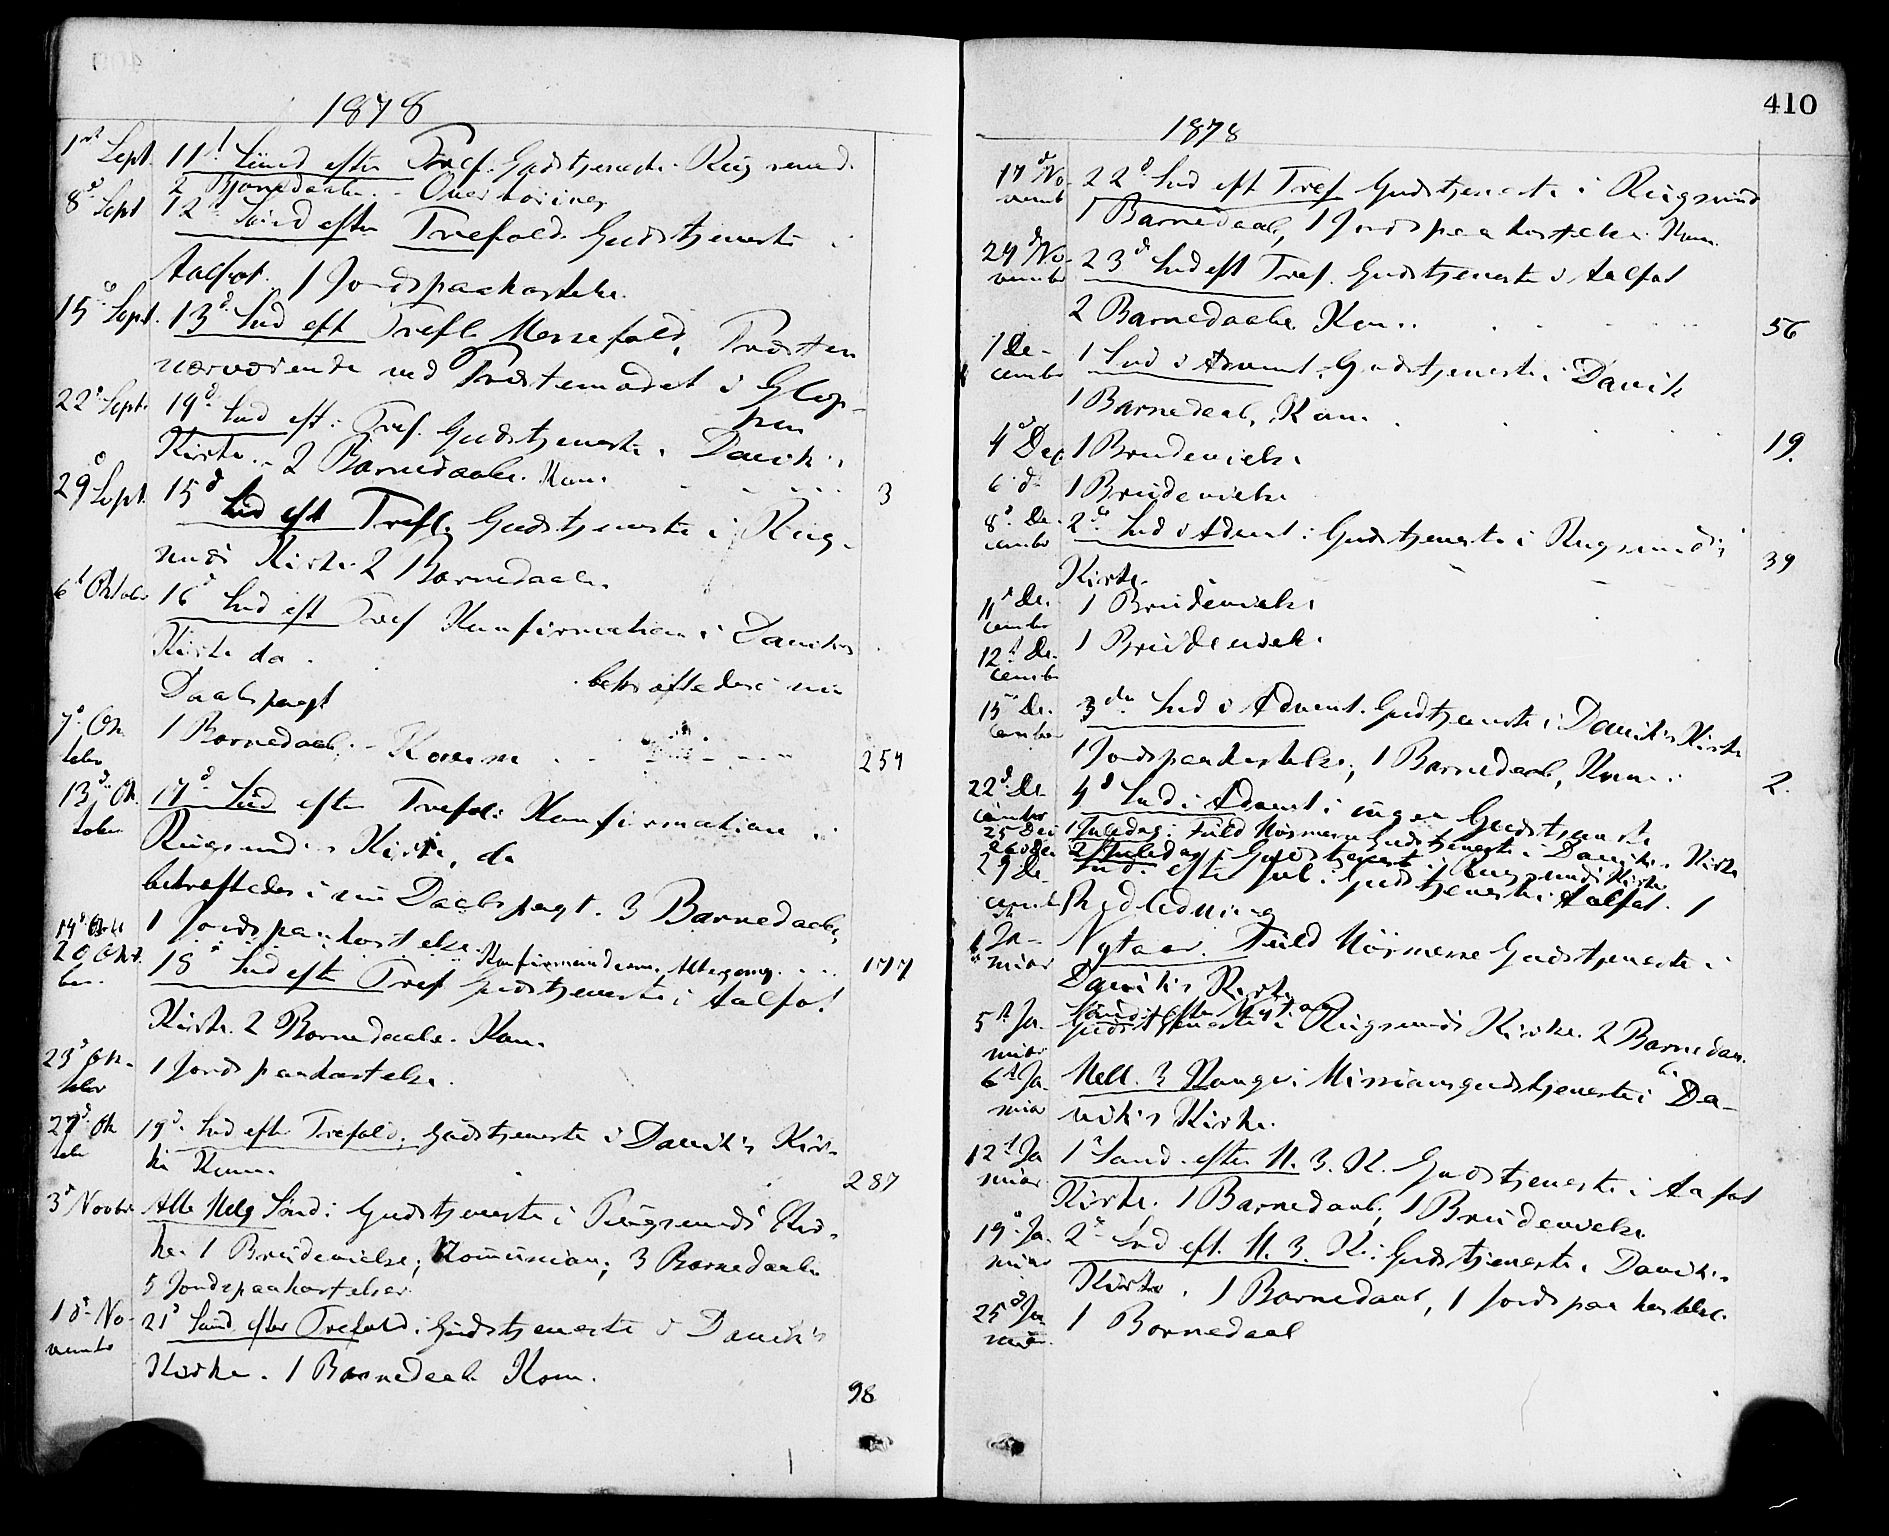 1878
1ste Sept. 11t Sünd efter Tref. Gudstjeneste i Rügsund.
2 Barnedaabe. - Overhøring
8d Sept 12te Sünd efter Trefold. Gudstjeneste i
Aalfot. 1 Jordspaakastelse.
15d Sept. 13d Snd eft Trefl. Messefald, Præsten
nærværende ved Præstemødet i Glop-
pen
22d Sept. 14d Snd eft. Tref. Gudstjeneste i Davik's
Kirke. - 2 Barnedaabe. Kom. 3
29d Sept. 15d Snd eft Trefl. Gudstjeneste i Rüg-
sunds Kirke 2 Barnedaabe.
6t Oktober 16d Snd eft Tref Konfirmation i Daviks
Kirke da
bekræftedes sin
Daabspagt
7d Ok-
tober 1 Barnedaab; - Komm 254
13d Ok-
tober 17d Snd efter Trefol: Konfirmation i
Rügsunds Kirke, da
bekræftedes i sin Daabspagt. 3 Barnedaabe,
14d Okt 1 Jordspaakastelse. Konfirmanderne Altergang. 177
20 Okt.
ber. 18d Snd efter Tref Gudstjeneste i Aalfot
Kirke. 2 Barnedaabe. Kom.
23d Ok-
tober 1 Jordspaakastelse.
27d Ok
tober 19d Snd efter Trefold. Gudstjeneste i Davik's Kir-
ke Kom. 287
3d Novbr Alle Helg Snd: Gudstjeneste i Rügsunds Kir-
ke. 1 Brüdevielse; Komünion; 3 Barnedaabe
5 Jordspaakastelser.
10d No-
vembr 21d Sünd. efter Trefold: Gudstjeneste i Davik's
Kirke. 1 Barnedaab Kom. 98
410
1878
17d No-
vemb 22d Snd eft Tref Gudstjeneste i Rügsund
1 Barnedaab, 1 Jordspaakastelse. Kom.
24d No-
vembr 23d Snd eft Tref. Gudstjeneste i Aalfot
2 Barnedaabe Kom. 56
1 De-
cembr 1 Snd i Advent. Gudstjeneste i Davik
1 Barnedaab, Kom. 19.
4d Dec 1 Brudevielse
6 d 1 Brüdevielse
8d De-
cembr 2d Snd i Advent: Gudstjeneste i Rügsunds
Kirke. 39
11t De.
cembr 1 Brüdevielse
12t De.
cembr 1 Brüdevielse.
15d De.
cembr 3die Snd i Advent. Gudstjeneste i Davik's Kirke
1 Jordspaakastelse, 1 Barnedaab, Kom. 2.
22d De
cembr 4d Snd i Advent: ingen Gudstjeneste
25 Dec 1 Juledag: Fuld Høimesse Gudstjeneste i Davik's Kirke
26 Dec 2 Juledag: Gudstjeneste i Rugsunds Kirke
29 De-
cemb Snd. efter Jul: Gudstjeneste i Aalfot. 1
Bedledning
1 Ja-
nuar Nytaar. Fuld Høimesse Gudstjeneste i
Davik's Kirke
Sünd. efter Nytaar
5t Ja.
nuar Gudstjeneste i Rügsunds Kirke. 2 Barnedaa-
be
6t Ja-
nuar Hell. 3 Konger: Missionsgudstjeneste i Da-
vik's Kirke.
12t Ja
nuar 1s Sønd. efter H. 3. K. Gudstjeneste i Aafot
Kirke. 1 Barnedaab, 1 Brüdevielse
19d Ja-
nuar 2d Snd eft. H. 3. K: Gudstjeneste i Davik's
Kirke. 1 Barnedaab, 1 Jordspaakastelse.
25d Ja
nuar. 1 Barnedaab